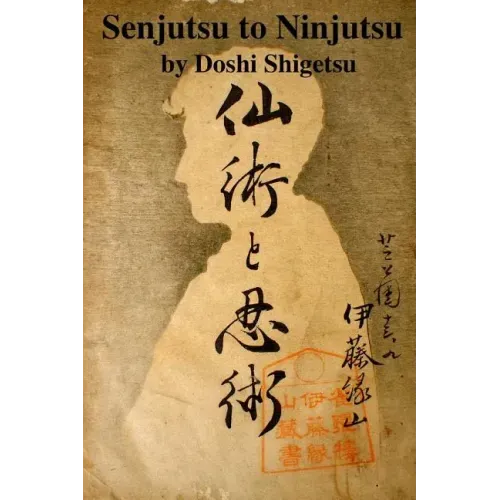 Senjutsu to Ninjutsu
by Doshi Shigetsu
仙術と忍術
芝公園
伊藤縁山
伊藤縁
山蔵書